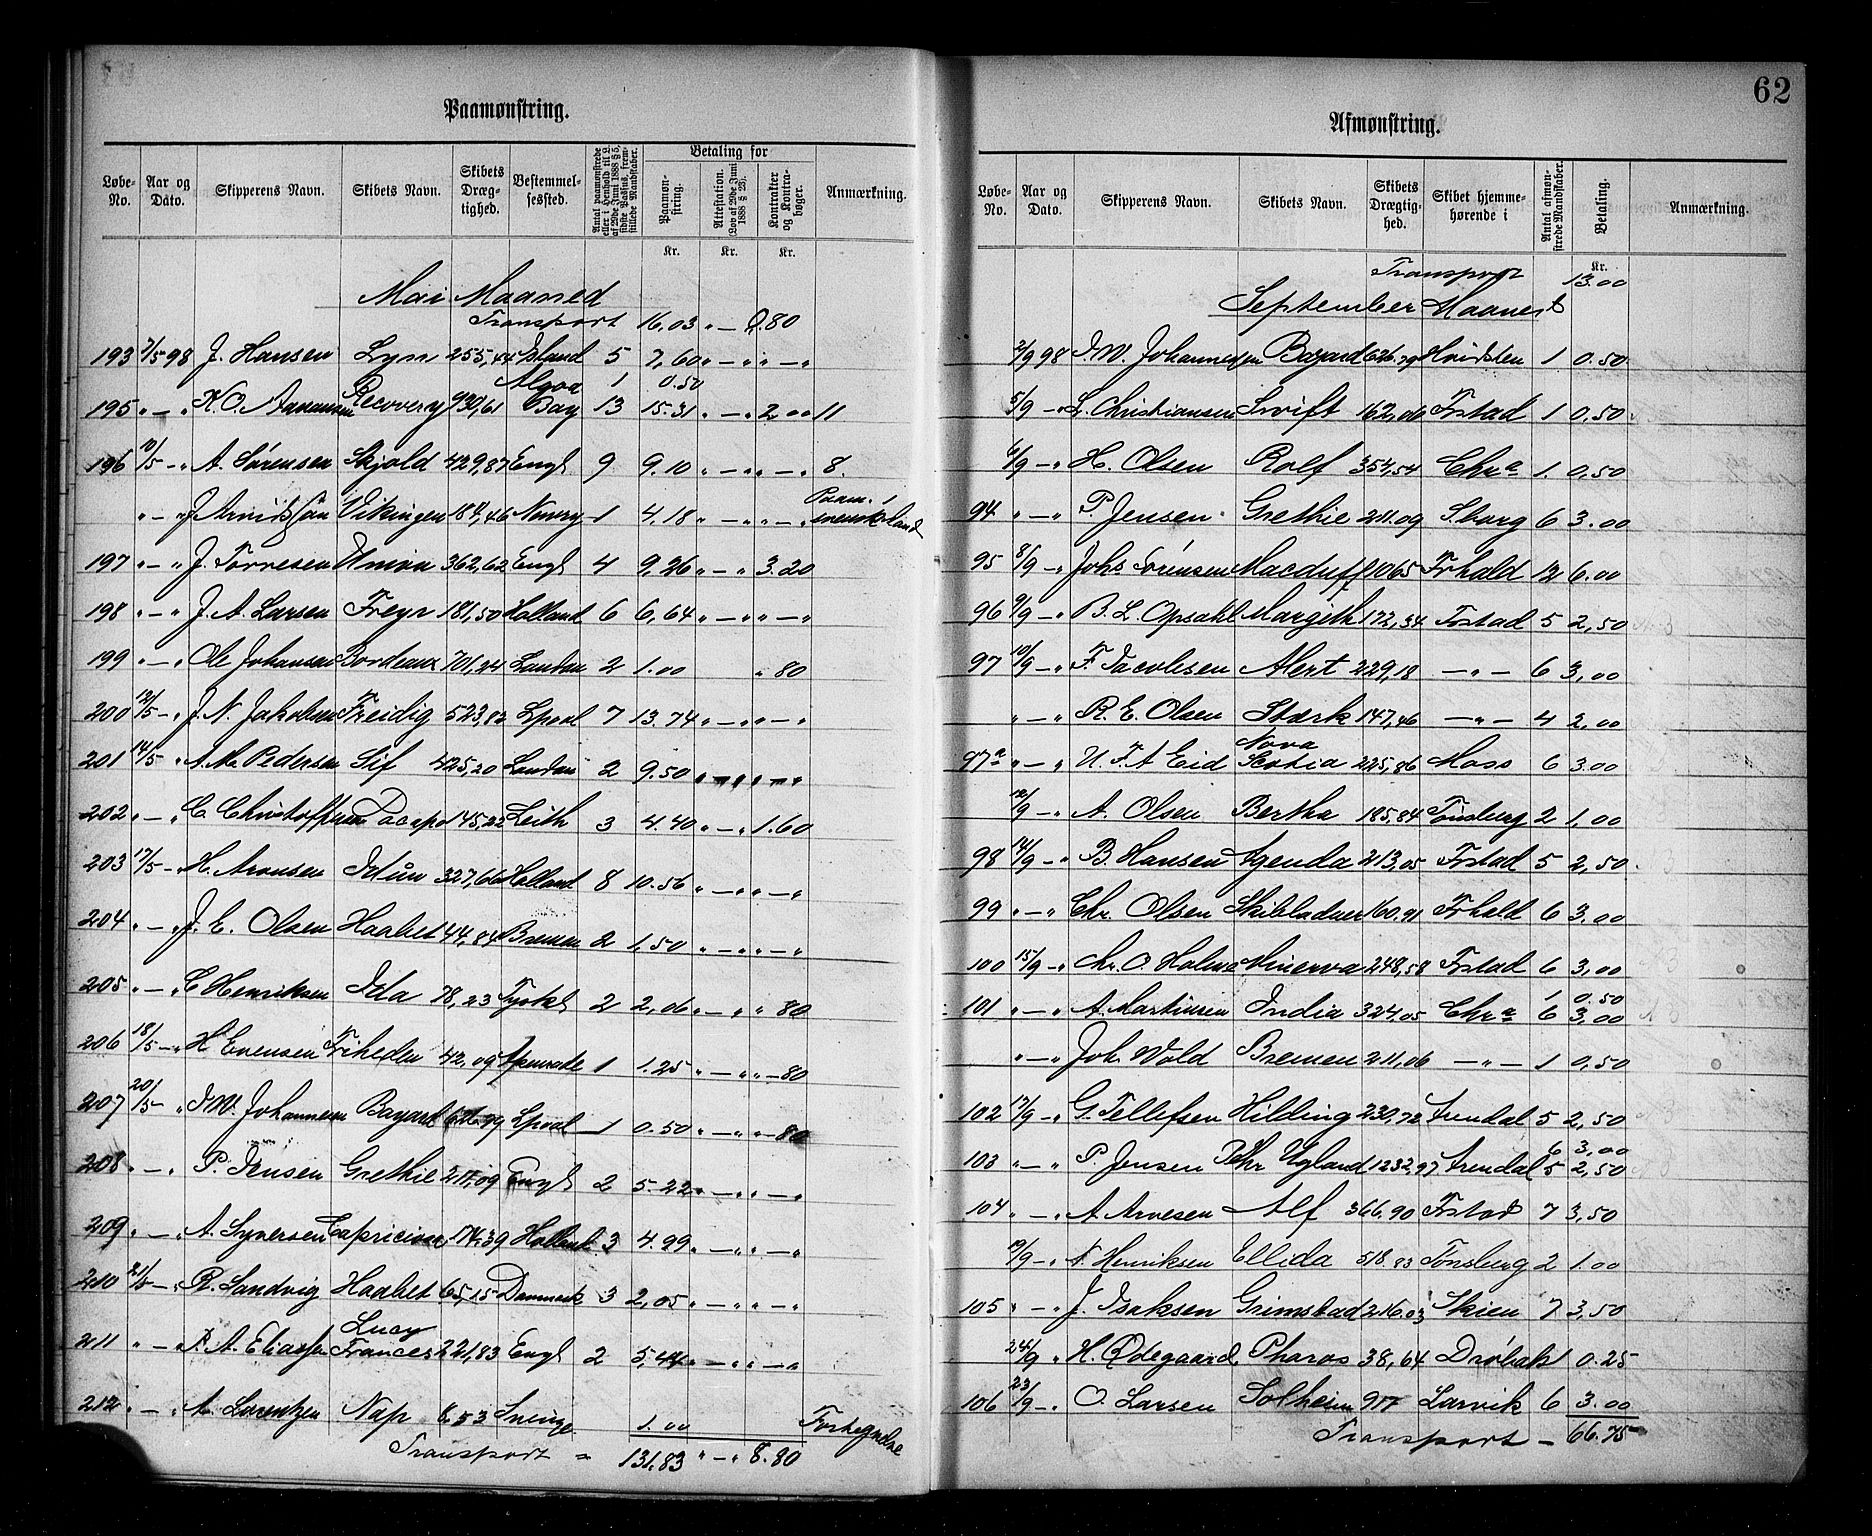 62
Paamønstring.
Løbe-No. Aar og Dato. Skipperens Navn. Skibets Navn. Skibets Drægtighed. Bestemmelsessted. Betaling for Paamønstring. Attestation. (Lov af 29de Juni 1888 § 23). Kontrakter og Kontrabøger. Anmærkning.
Kr. Kr. Kr.
Mai Maaned
Transport 16,03 „ — 0.80
193 7/5 98 J. Hansen Lyn 255,44 Island 5 7,60 „ — „ „ — „
Algoa 1 0.50
195 „ — „ K. O. Aanensen Recovery 930,61 Bay 13 15.31 „ — „ 2.00 11
196 10/5 — „ A. Sørensen Skjold 429,87 Engl 9 9.10 „ — „ „ — „ 8.
„ — „ J Arvidsson Vikingen 184,46 Newry 1 4.18 „ — „ „ — „
197 „ — „ J. Torresen Union 362,62 Engl 4 9,26 „ — „ 3.20
198 „ — „ J. A. Larsen Freyr 181,50 Holland 6 6,64 „ — „ „ — „
199 „ — „ Ole Johansen Bordeaux 701,24 London 2 1.00 „ 80
200 12/5 — „ J. N. Jakobsen Freidig 523,82 Lpool 7 13.74 „ — „ „ — „
201 14/5 „ A. M. Pedersen Sif 425,20 London 2 9.50 „ — „ „ — „
202 „ — „ C. Christoffersen Dacapo 145,22 Leith 3 4.40 „ — „ 1.60
203 17/5 — „ H. Aronsen Idun 327,66 Holland 8 10.56 „ — „ „ — „
204 „ — „ J. E. Olsen Haabet 44,84 Bremen 2 1,50 „ — „ „ — „
205 „ — „ C Henriksen Ida 78,23 Tyskl 2 2,06 „ — „ „ 80
206 18/5 — „ H Evensen Friheden 42,09 Apenrade 1 1.25 „ — „ „ — 80
207 20/5 — „ I W. Johannesen Bayard 626.79 Lpool 1 0.50 „ — „ „ — 80
208 „ — „ P. Jensen Grethie 211,09 Engl 2 5.22 „ — „ „ — „
209 „ — „ A. Syversen Capricious 174.39 Holland 3 4.99 „ — „ „ — „
210 21/5 — „ R. Sandvig Haabet 65,15 Danmark 3 2,05 „ — „ „ — „
Lucy
211 „ — „ P. A. Eliassen Frances 221,83 Engl 2 5,44 „ — „ „ — „
212 „ — „ A. Lorentzen Nap 853 1.00
Transport = 131.83 „ — „ 8.80
Afmønstring.
Løbe-No. Aar og Dato. Skipperens Navn. Skibets Navn. Skibets Drægtighed. Skibet hjemmehørende i Antal afmønstrede Mandskaber. Betaling. Anmærkning.
Kr.
Transport 13.00
September Maaned
2/9 98 I W. Johannesen Bayard 626.79 Hvidsten 1 0.50
5/9 — „ L. Christiansen Swift 162,06 Frstad 1 0,50
6/9 — „ H. Olsen Rolf 354,54 Chra 1. 0,50
94 „ — „ P. Jensen Grethie 211.09 S.borg 6 3.00
95 8/9 — „ Johs Sørensen Macduff 1065 Frhald 12 6.00
96 9/9 — „ B. L. Opsahl Margith 172,34 Frstad 5 2,50
97 10/9 — „ F. Jacobsen Alert 229,18 — „ — 6 3,00
„ — „ R. E. Olsen Stærk 147,46 — „ — 4 2,00
Nova
97a „ — „ U. T. A Eid Scotia 225,86 Moss 6 3.00
12/9 — „ A. Olsen Bertha 185,84 Tønsberg 2 1,00
98 14/9 — „ B. Hansen Agenda 213,05 Frstad 5 2,50
99 „ — „ Chr. Olsen Skibladner 160,91 Frhald 6 3,00
100 15/9 — „ Chr. O. Holm Minerva 248,58 Frstad 6 3,00
1 0.50
101 „ — „ A. Martinsen India 324,05 Chra 6 3,00
„ — „ Joh. Wold Bremen 211,06 — „ — 1 0,50
102 17/9 — „ G. Tellefsen Hilding 230,72 Arendal 5 2,50
6 3,00
103 „ — „ P. Jensen Ugland 1232,97 Arendal 5 2,50
104 „ — „ A. Arvesen Alf 366.90 Frstad 7 3,50
19/9 — „ N. Henriksen Ellida 518.83 Tønsberg 2 1.00
105 „ — „ J. Isaksen Grimstad 216.03 Skien 7 3,50
24/9 „ H. Ødegaard Pharos 38,64 Drøbak 1 0.25
106 23/9 — „ O. Larsen Solheim 917 Larvik 6 3.00
Transport — 66.75